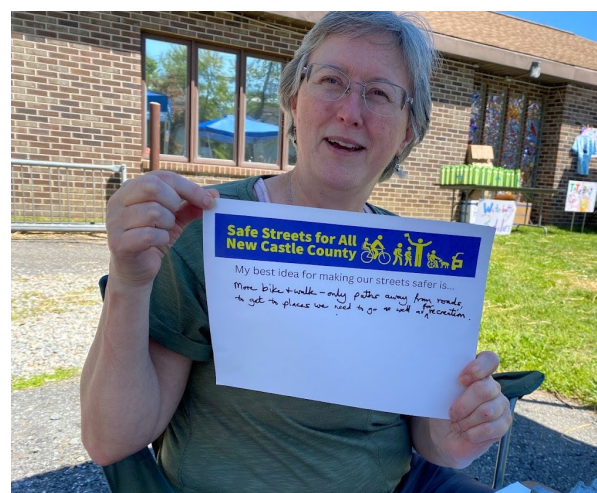 Safe Streets for All
New Castle County
My best idea for making our streets safer is...
More bike + walk-only paths away from roads,
to get to places we need to go as well as for recreation.